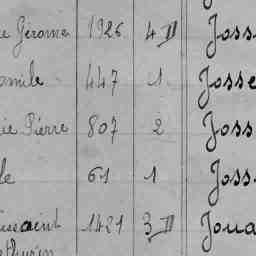 Jérome 1926 4 II Joss
447 1 Josse
Pierre 807 2 Joss
61 1 Joss
1421 3 II Joua